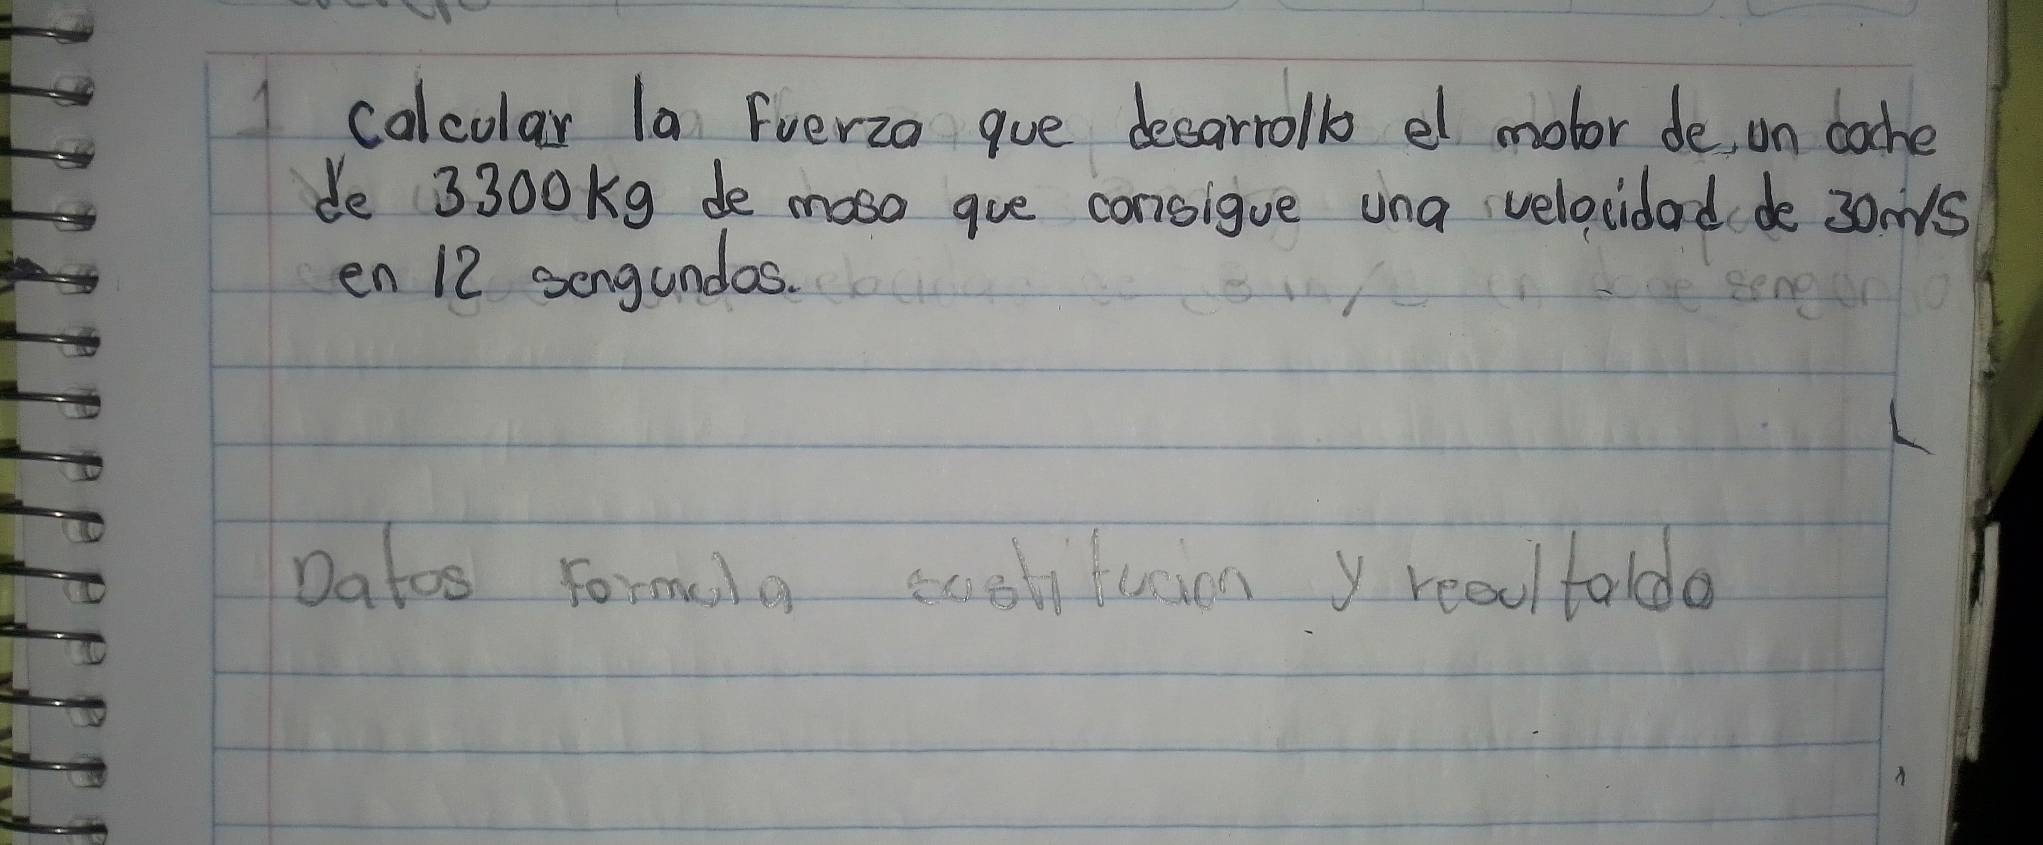 1 calcular la Fuerza que desarrollo el motor de un coche
de 3300Kg de masa que consigue una velocidad de 30m/s
en 12 sengundos.
Datos Formula sustitucion y resultaldo